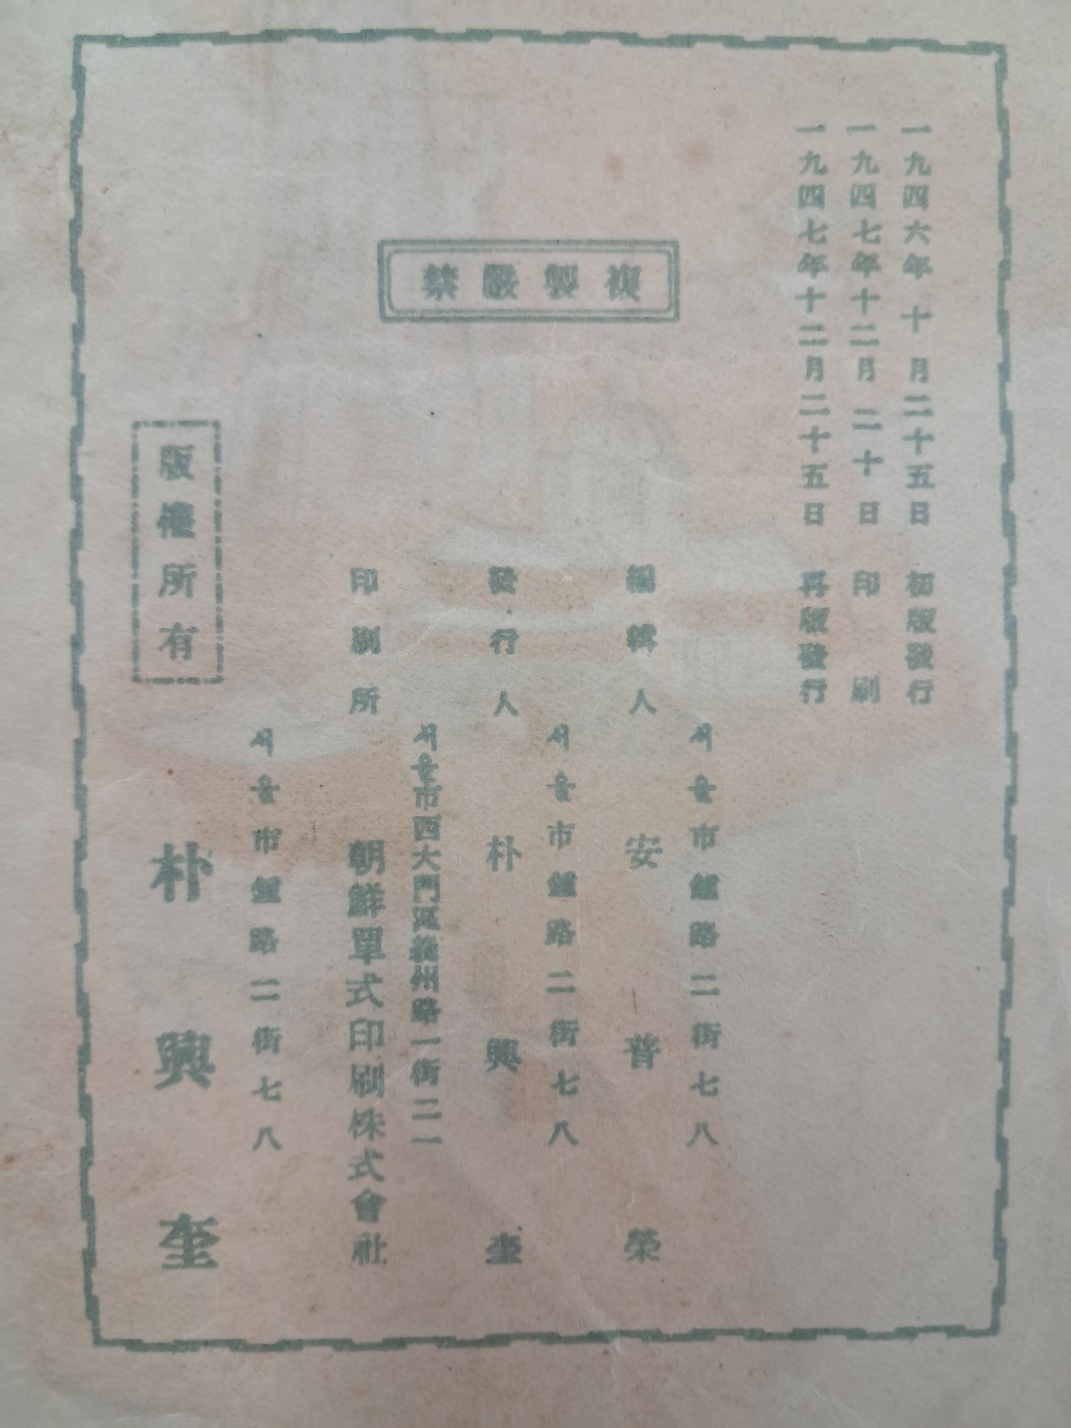 一九四六年 十 月二十五日 初版發行
一九四七年十二月 二十 日 印 刷
一九四七年十二月二十五日 再版發行
複製嚴禁
서울市鍾路二街七八
編輯人 安普榮
서울市鍾路二街七八
發行人 朴興奎
서울市西大門區義州路一街二一
印刷所 朝鮮單式印刷株式會社
서울市鍾路二街七八
版權所有 朴興奎